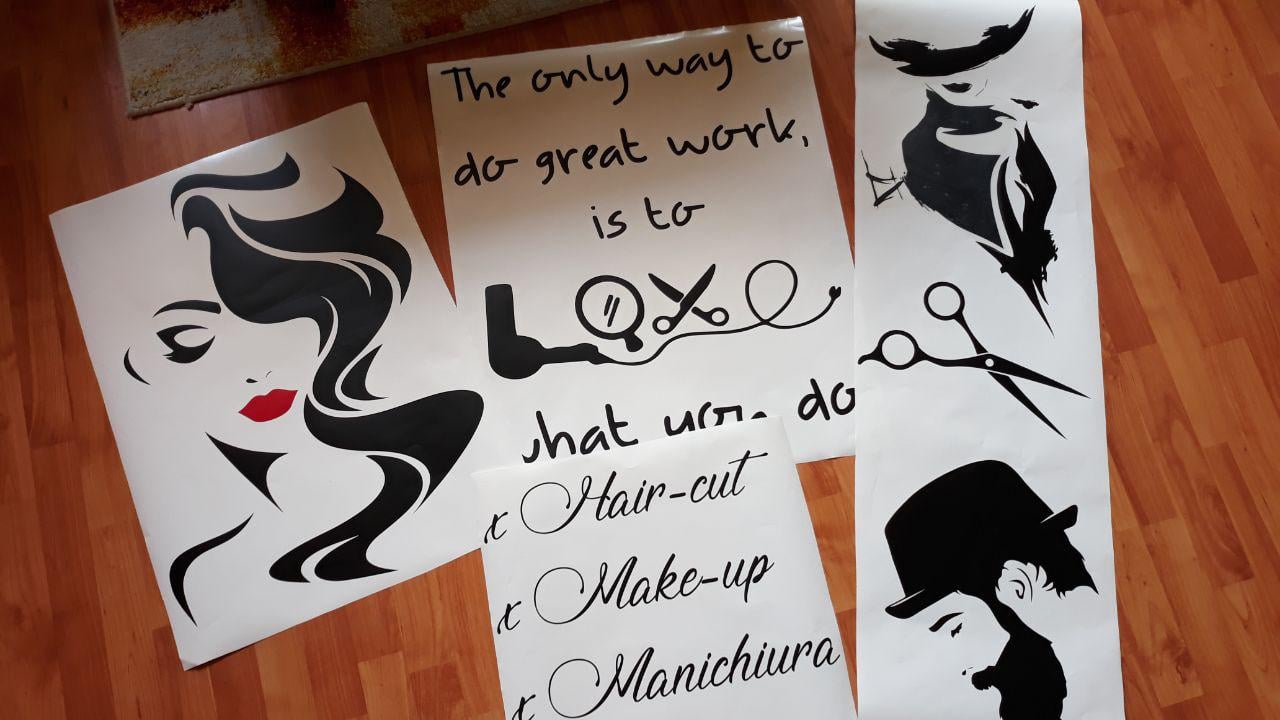 The only way to
do great work,
is to
LOVE
what you do
x Hair-cut
x Make-up
x Manichiura